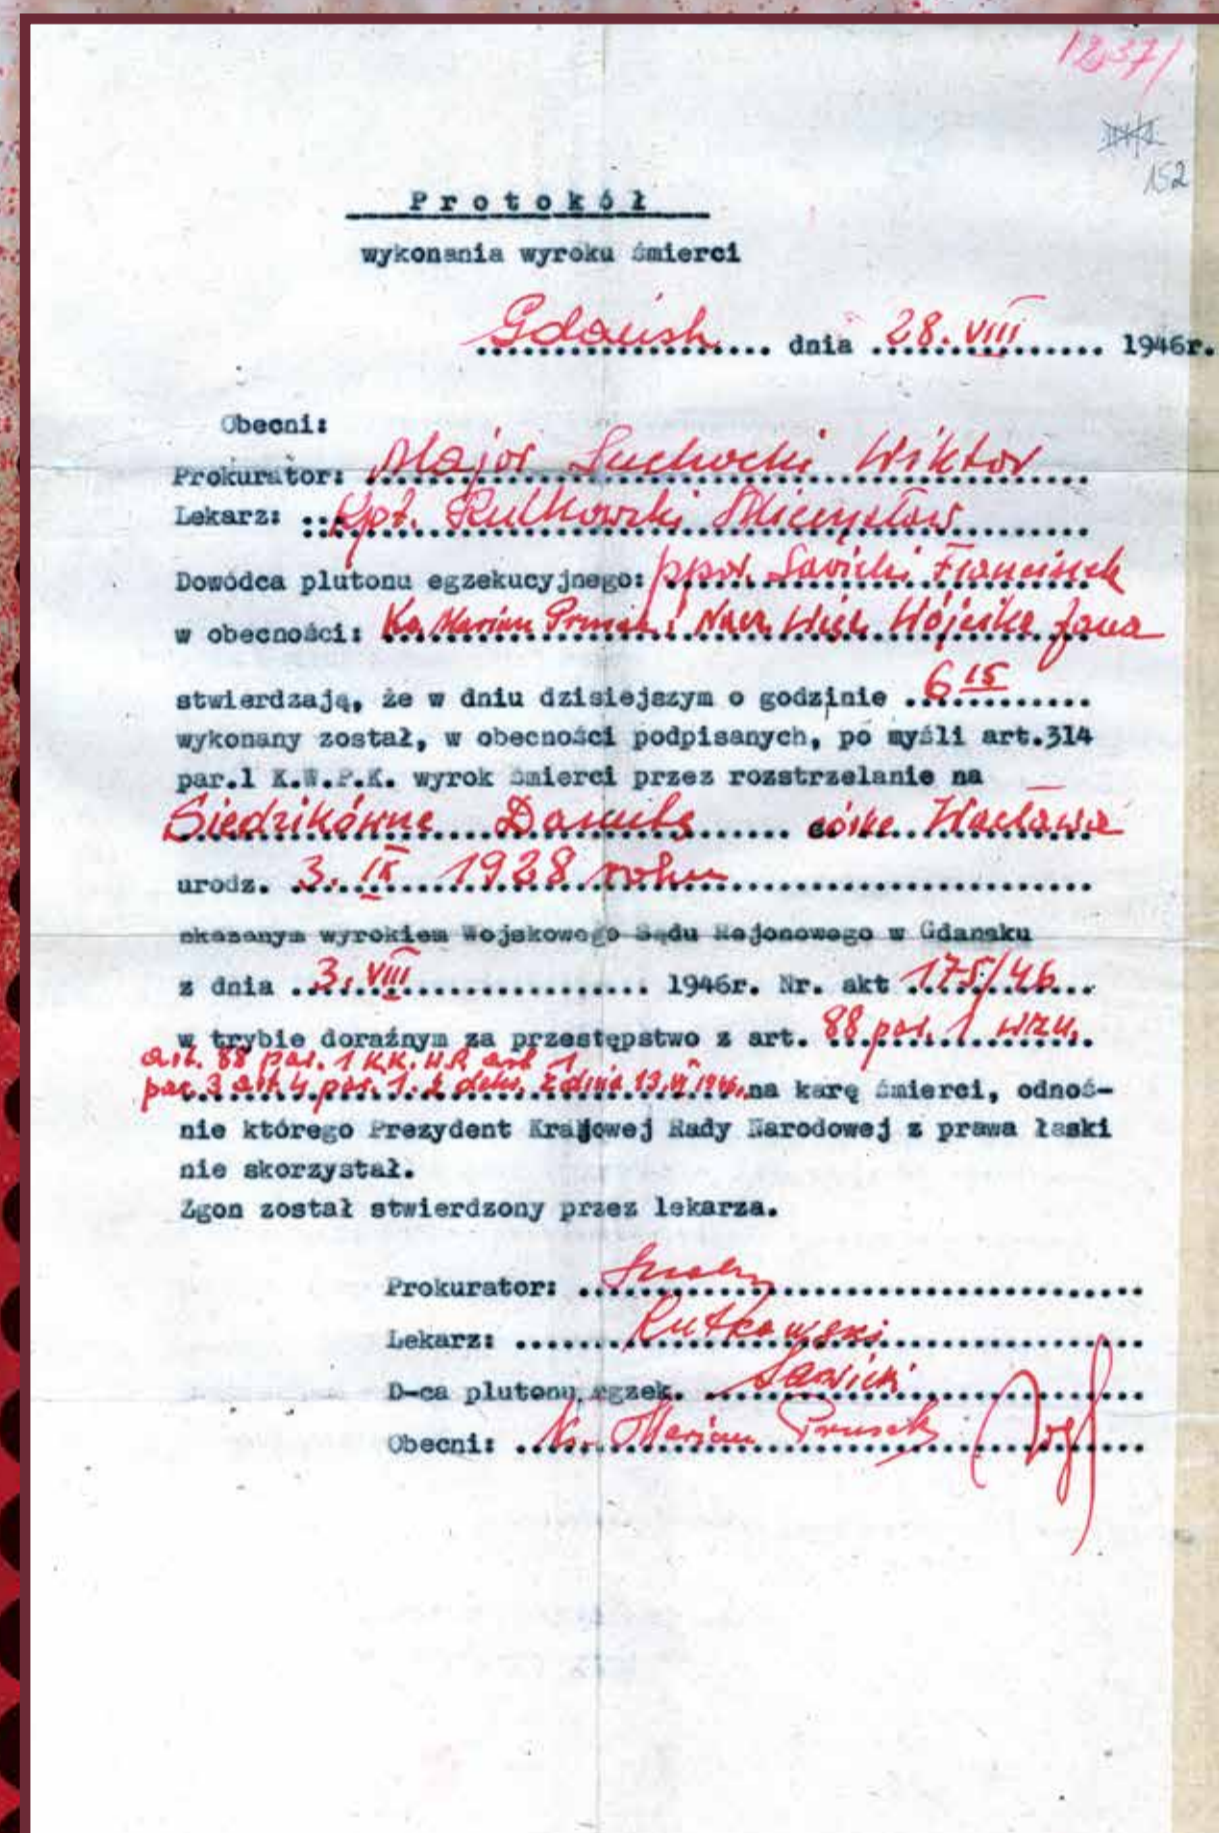 1237/
152
Protokół
wykonania wyroku śmierci
Gdańsk dnia 28. VIII 1946r.
Obecni:
Prokurator: Major Suchocki Wiktor
Lekarz: Kpt. Rutkowski Mieczysław
Dowódca plutonu egzekucyjnego: ppor. Sawicki Franciszek
w obecności: Ks. Marian Prusak i Nacz. Więz. Wójcika Jana
stwierdzają, że w dniu dzisiejszym o godzinie 6 15
wykonany został, w obecności podpisanych, po myśli art.314
par.1 K.W.P.K. wyrok śmierci przez rozstrzelanie na
Siedzikównę Danutę córkę Wacława
urodz. 3. IX 1928 roku
skazanym wyrokiem Wojskowego Sądu Rejonowego w Gdansku
z dnia 3. VIII 1946r. Nr. akt 175/46
w trybie doraźnym za przestępstwo z art. 88 par. 1
art. 88 par. 1 K.K. W.P. art 1
par. 3 art. 4 par. 1. 2 dekr. z dnia 13. VI 1946. na karę śmierci, odnoś-
nie którego Prezydent Krajowej Rady Narodowej z prawa łaski
nie skorzystał.
Zgon został stwierdzony przez lekarza.
Prokurator:
Lekarz: Rutkowski
D-ca plutonu egzek. Sawicki
Obecni: Ks. Marian Prusak